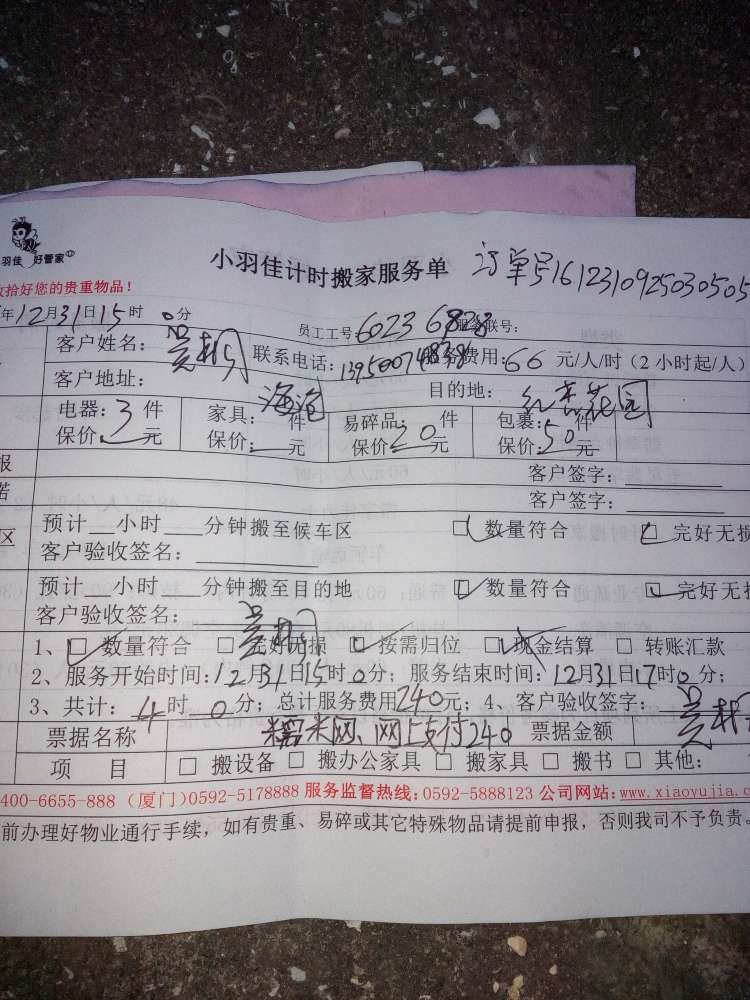 羽佳 好管家
小羽佳计时搬家服务单 订单号1612310925030505
收拾好您的贵重物品!
年12月31日15时0分 员工工号:6023 6828 服务联号:
客户姓名: 联系电话: 服务费用:66元/人/时(2小时起/人)
客户地址: 海沧 目的地: 红杏花园
电器:3件 家具: 件 易碎品: 件 包裹: 件
保价: 元 保价: 元 保价:20元 保价:50元
报 客户签字:
诺 客户签字:
区 预计 小时 分钟搬至候车区 数量符合 完好无损
客户验收签名:
预计 小时 分钟搬至目的地 数量符合 完好无损
客户验收签名:
1、 数量符合 完好无损 按需归位 现金结算 转账汇款
2、服务开始时间:12月31日15时0分;服务结束时间:12月31日17时0分;
3、共计:4时0分;总计服务费用240元;4、客户验收签字:
票据名称 糯米网、网上支付240 票据金额
项 目 搬设备 搬办公家具 搬家具 搬书 其他:
400-6655-888 (厦门)0592-5178888 服务监督热线:0592-5888123 公司网站:www.xiaoyujia.c
前办理好物业通行手续,如有贵重、易碎或其它特殊物品请提前申报,否则我司不予负责。